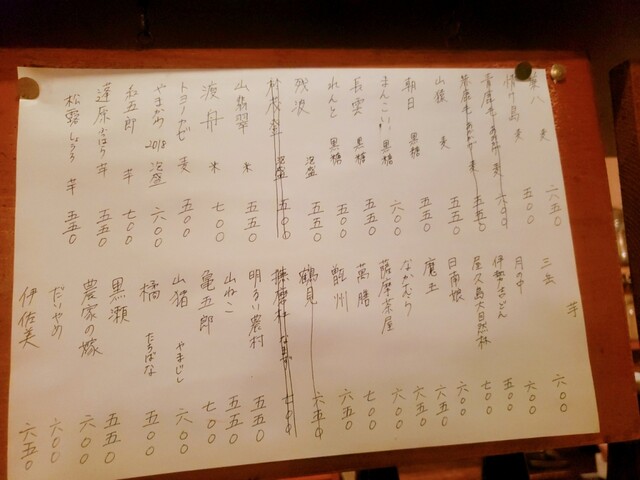 兼八 麦 六五〇
情け嶋 麦 五〇〇
青鹿毛 麦 六〇〇
麦 五五〇
山猿 麦 五五〇
朝日 黒糖 五五〇
まんこい 黒糖 六〇〇
長雲 黒糖 五五〇
れんと 黒糖 五〇〇
残波 泡盛 五五〇
泡盛 五〇〇
山翡翠 米 五五〇
渡舟 米 七〇〇
トヨノカゼ 麦 五〇〇
やまかめ 2018 泡盛 六〇〇
五郎 芋 七〇〇
蓬原 ふつはら 芋 五五〇
松露 しょうろ 芋 五五〇
芋
三岳 六〇〇
月の中 六〇〇
伊勢 五〇〇
屋久島大自然林 七〇〇
日南娘 六〇〇
魔王 六五〇
なかむら 六〇〇
薩摩茶屋 六〇〇
萬膳 七〇〇
甑州 六五〇
鶴見 六五〇
七〇〇
明るい農村 五五〇
山ねこ 五五〇
亀五郎 七〇〇
山猪 やまじし 六〇〇
橘 たちばな 五〇〇
黒瀬 五五〇
農家の嫁 六〇〇
だいやめ 六〇〇
伊佐美 六五〇